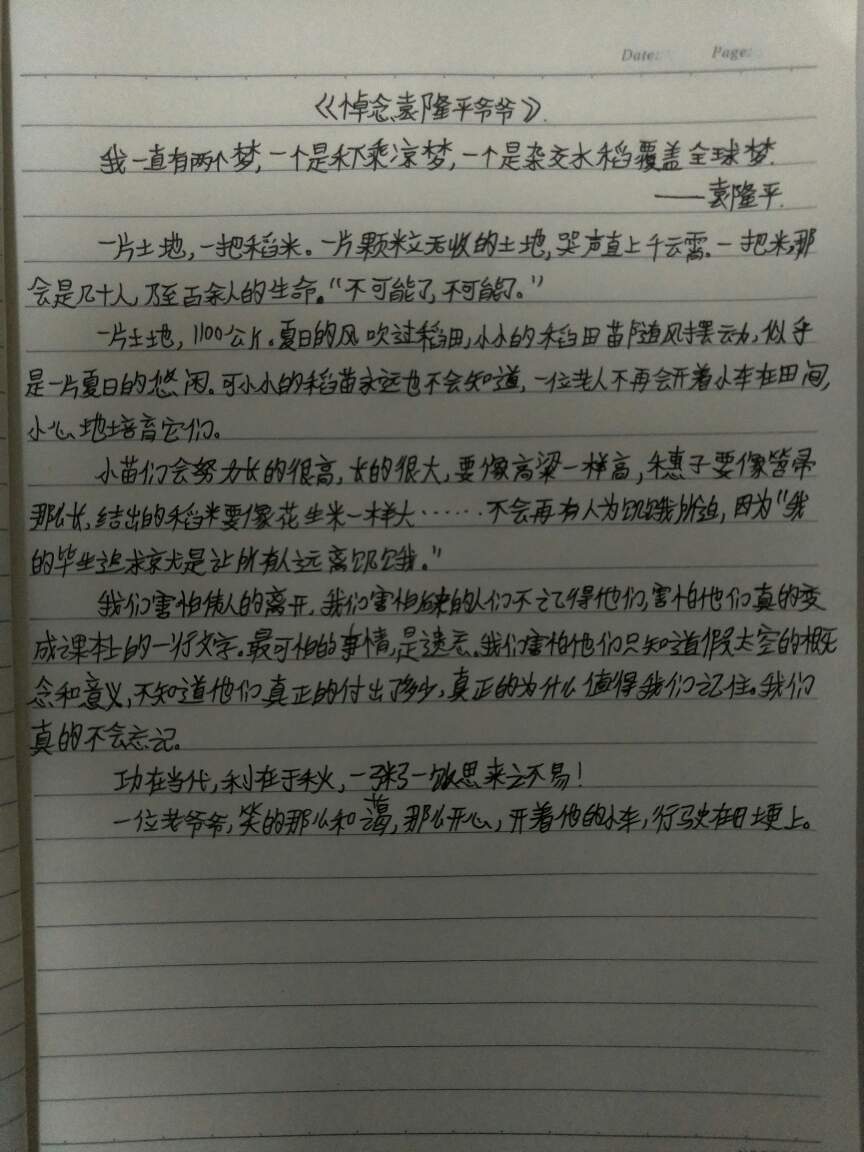 Date: Page:
《悼念袁隆平爷爷》.
我一直有两个梦,一个是禾下乘凉梦,一个是杂交水稻覆盖全球梦.
——袁隆平.
一片土地,一把稻米。一片颗粒无收的土地,哭声直上千云霄.一把米,那
会是几十人,乃至百余人的生命。“不可能了,不可能了。”
一片土地,1100公斤。夏日的风吹过稻田,小小的稻田苗随风摆动,似乎
是一片夏日的悠闲。可小小的稻苗永远也不会知道,一位老人不再会开着小车在田间,
小心地培育它们。
小苗们会努力长的很高,长的很大,要像高粱一样高,穗子要像笤帚
那么长,结出的稻米要像花生米一样大……不会再有人为饥饿所迫,因为“我
的毕生追求就是让所有人远离饥饿。”
我们害怕伟人的离开,我们害怕后来的人们不记得他们,害怕他们真的变
成课本上的一行文字。最可怕的事情,是遗忘。我们害怕他们只知道假大空的概
念和意义,不知道他们真正的付出了多少,真正的为什么值得我们记住。我们
真的不会忘记。
功在当代,利在千秋,一粥一饭思来之不易!
一位老爷爷,笑的那么和蔼,那么开心,开着他的小车,行驶在田埂上。